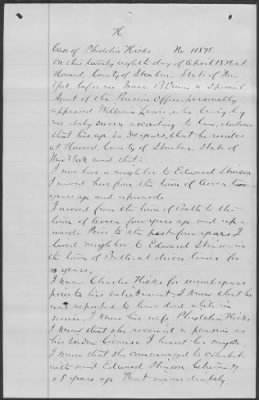 H
Case of Phidelia Hicks No 11898.
On this twenty eighth day of April 1876 at
Howard County of Steuben State of New
York, before me Isaac B. a Special
Agent of the Pension Office personally
appeared William Lewis who being by
me duly sworn according to law, declares
that his age is 34 years, that he resides
at Howard County of Steuben, State of
New York and that:
I now live a neighbor to Edward Stinson
I moved here from the town of Avoca two
years ago and upwards
I moved from the town of Bath to the
town of Avoca four years ago and up-
wards. Prior to the past four years I
lived neighbor to Edward Stinson in
the town of Bath at divers times for
years.
I knew Charles Hicks for several years
prior to his enlistment, I knew that he
was reported to have died while in
service. I knew his wife Phidelia Hicks
I knew that she received a pension as
his widow because I heard her say so.
I knew that she commenced to cohabit
with said Edward Stinson
8 years ago. That immediately